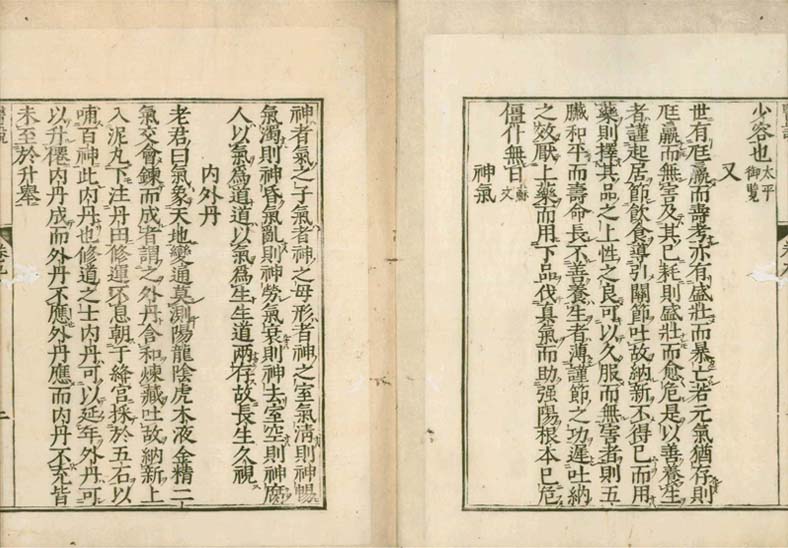 少容也太平御覧
又
世有尫羸而壽考亦有盛壮而暴亡若元氣猶存則
尫羸而無害及其已耗則盛壮而愈危是以善養生
者謹起居節飲食導引關節吐故納新不得已而用
藥則擇其品之上性之良可以久服而無害者則五
臓和平而壽命長不善養生者薄謹節之功遲吐納
之效厭上藥而用下品伐真氣而助强陽根本已危
僵仆無日蘇文
神氣
神者氣之子氣者神之母形者神之室氣清則神暢
氣濁則神昏氣亂則神勞氣衰則神去室空則神腐
人以氣為道道以氣為生生道兩存故長生久視
内外丹
老君曰氣象天地變通莫測陽龍陰虎木液金精二
氣交會錬而成者謂之外丹含和煉藏吐故納新上
入泥丸下注丹田修運不息朝于絳宮採於五石以
哺百神此内丹也修道之士内丹可以延年外丹可
以升僊内丹成而外丹不應外丹應而内丹不充皆
未至於升舉